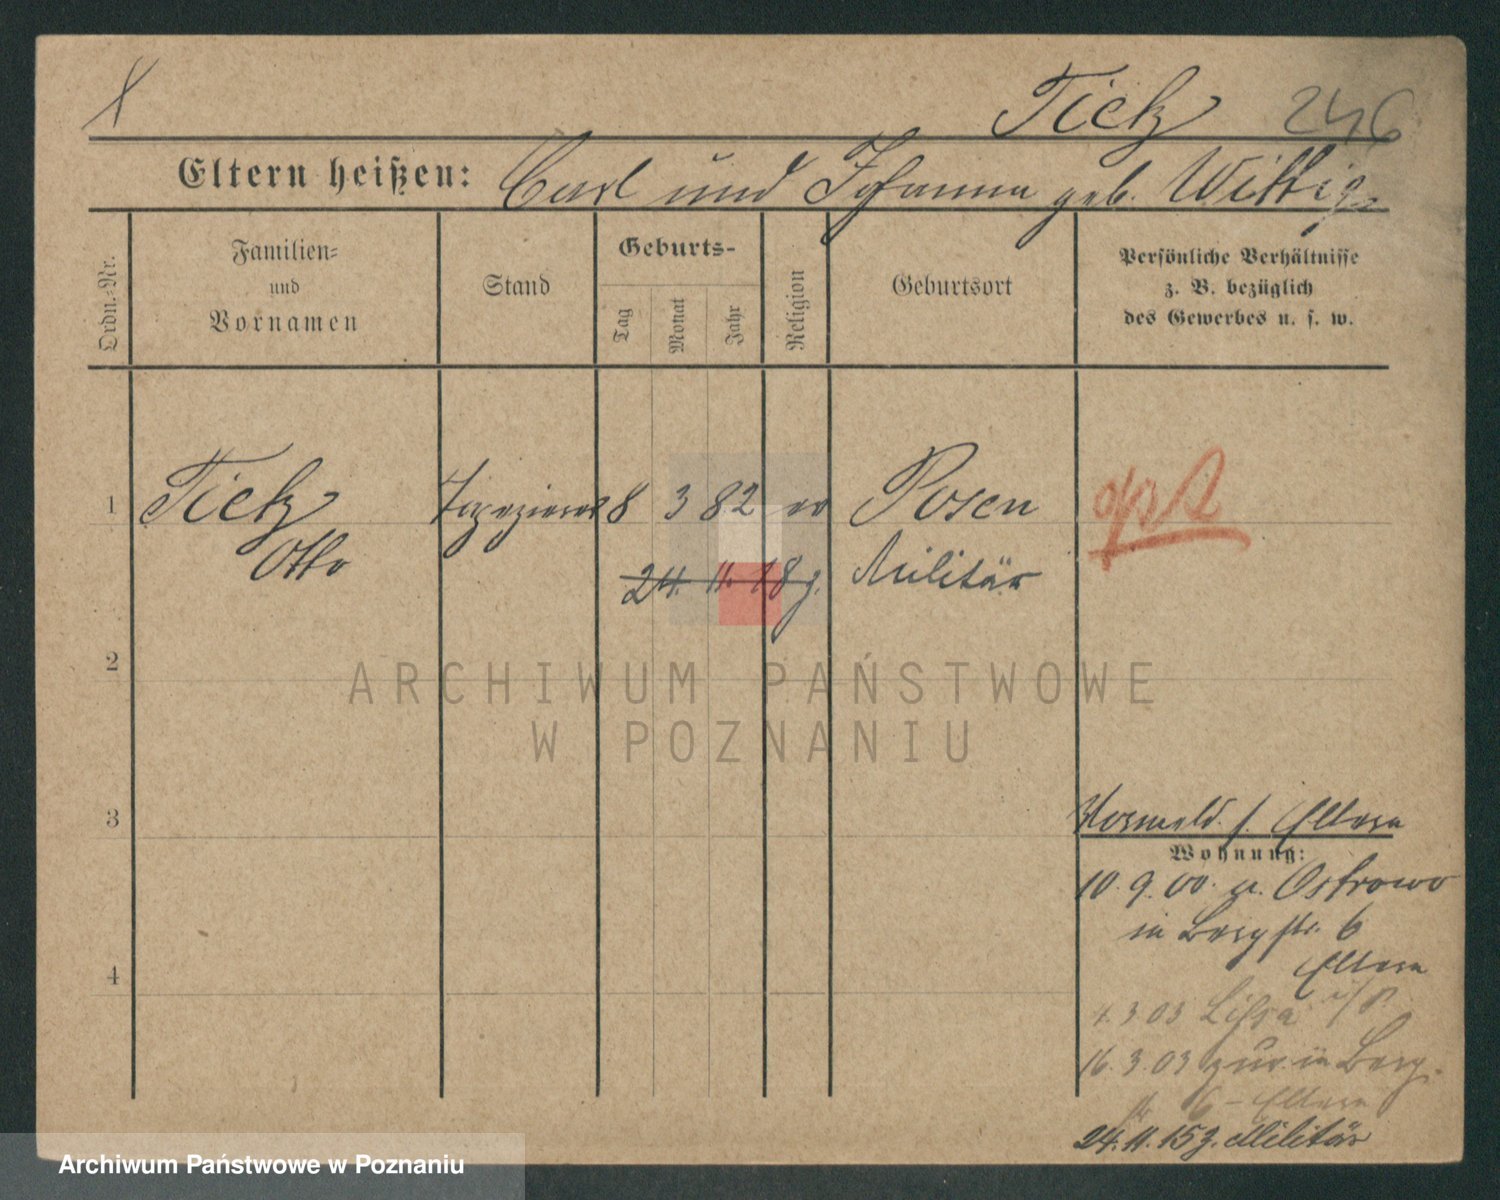 Tietz 246
Eltern heißen: Carl und Johanna geb. Wittig
Ordn.-Nr.
Familien-
und
Vornamen
Stand
Geburts-
Tag
Monat
Jahr
Religion
Geburtsort
Persönliche Verhältnisse
z. B. bezüglich
des Gewerbes u. s. w.
1 Tietz Tapezierer 8 3 82 ev Posen
Otto
24. 11. 18 z. Militär
2
3
4
Vormeld. s. Eltern
Wohnung:
10. 9. 00. Ostrowo
in Bergstr. 6
Eltern
1. 3 03 Lissa i/P
16. 3. 03 zur in Berg-
str 6 - Eltern
24. 11. 15 z. Militär
ARCHIWUM PAŃSTWOWE
W POZNANIU
Archiwum Państwowe w Poznaniu